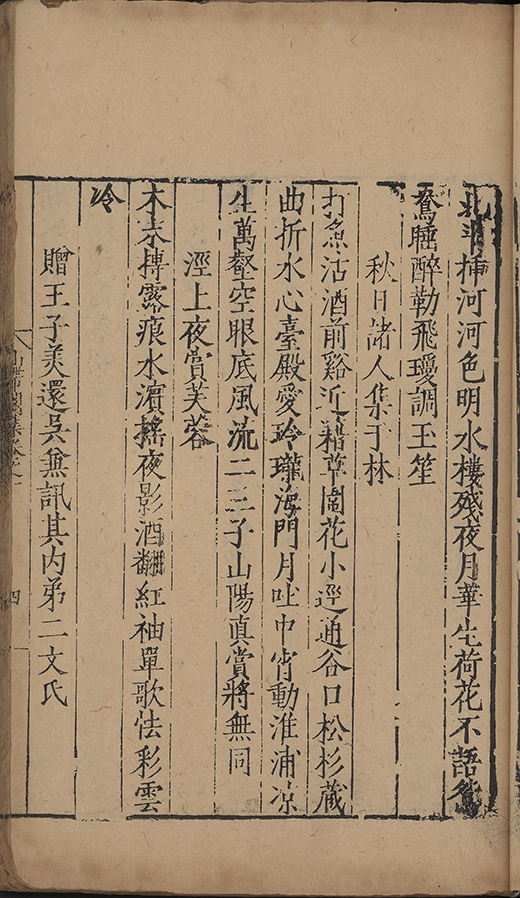 北斗揷河河色明水樓殘夜月華生荷花不語鴛
鴦睡醉勒飛瓊調玉笙
秋日諸人集于林
打魚沽酒前谿近藉草圍花小逕通谷口松杉藏
曲折水心臺殿愛玲瓏海門月吐中宵動淮浦凉
生萬壑空眼底風流二三子山陽眞賞將無同
涇上夜賞芙蓉
木末摶露痕水濱搖夜影酒翻紅袖單歌怯彩雲
冷
贈王子美還吳兼訊其内弟二文氏
四